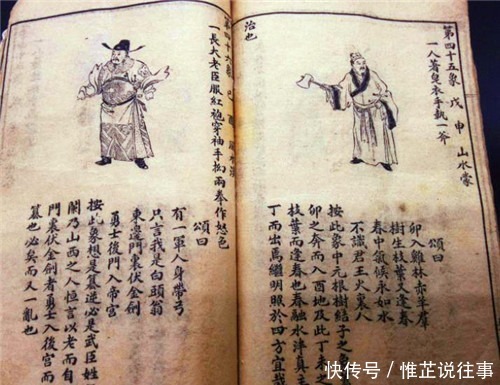 第四十五象 戊申 山水蒙
一人著皂衣手執一斧
頌曰
卯入雞林赤羊群
樹生枝葉又逢春
春中氣候永如水
不識君王火裏人
按此象中元根樹結子之
卯之奔而入酉地及此丁未
枝葉而逢春也春融水洋真主
丁而出焉繼明照於四方宜哉
治也
第四十六象 己酉 風水渙
一長大老臣服紅袍穿袖手拘兩拳作怒色
頌曰
有一軍人身帶弓
只言我是白頭翁
東邊門裏伏金劍
勇士後門入帝宮
按此象想是篡逆必是武臣姓
乃山西之人恒言以老而自
門裏伏金劍者勇士入後宮而
篡也必矣而又一亂也
快传号 / 惟芷说往事